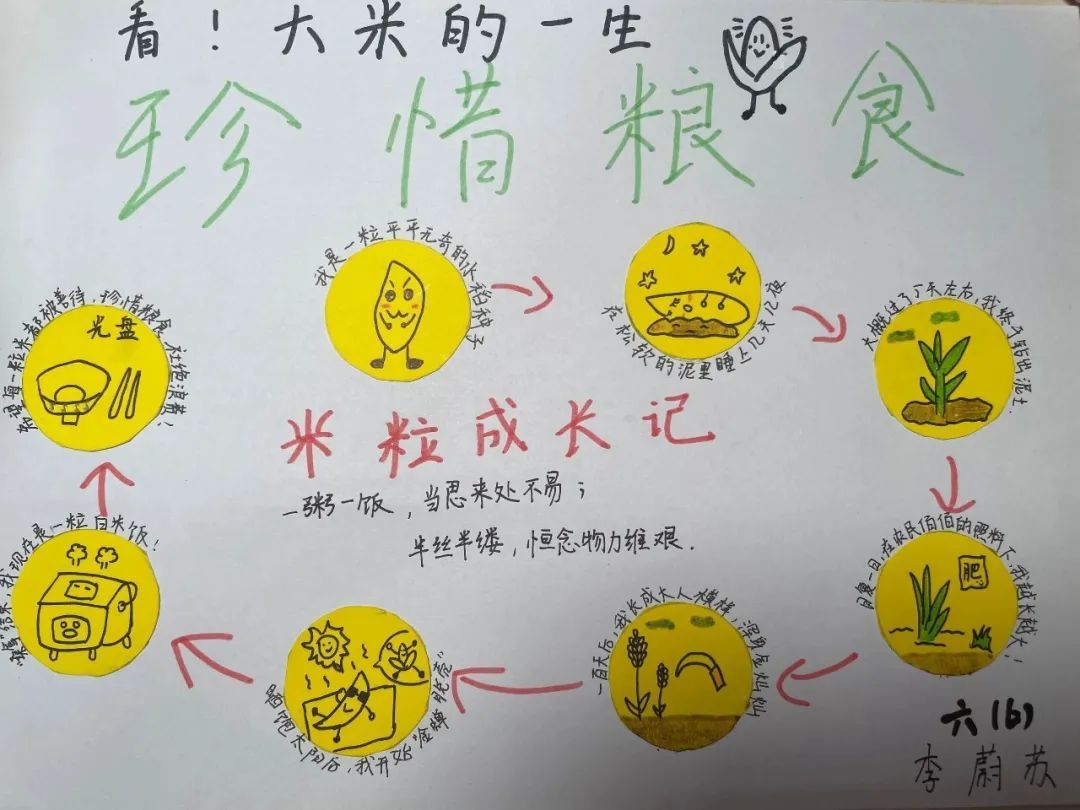 看！大米的一生
珍惜粮食
我是一粒平平无奇的水稻种子
在松软的泥里睡上几天几夜
大概过了5天左右，我终于钻出泥土.
日复一日，在农民伯伯的照料下，我越长越大；
肥
一百天后，我长成大人模样，浑身金灿灿
晒饱太阳后，我开始“金蝉脱壳”
结束，我现在是一粒白米饭！
希望每一粒米都被善待，珍惜粮食，杜绝浪费！
光盘
米粒成长记
一粥一饭，当思来处不易；
半丝半缕，恒念物力维艰.
六(6)
李蔚苏